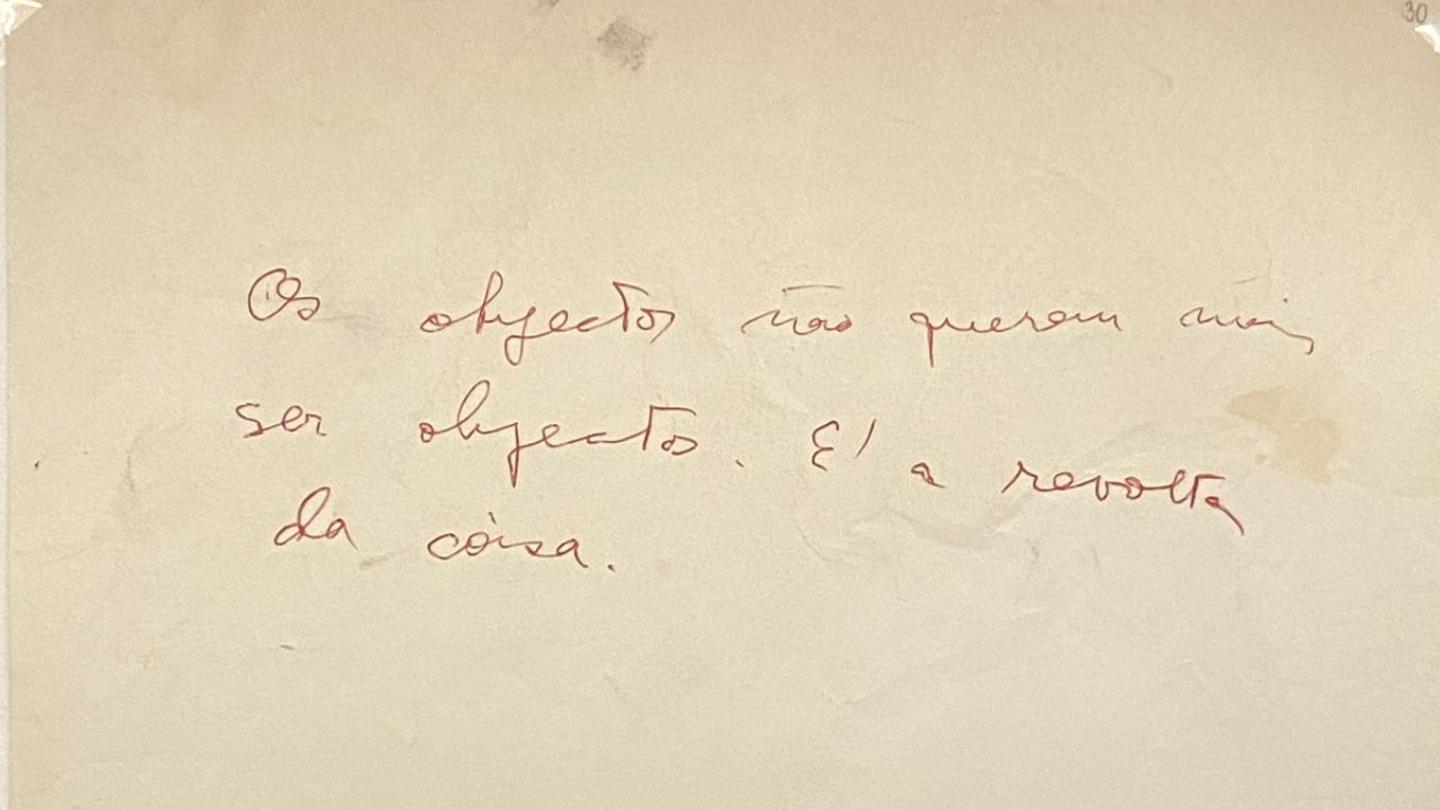 30
Os objectos não querem mais
ser objectos. E' a revolta
da coisa.